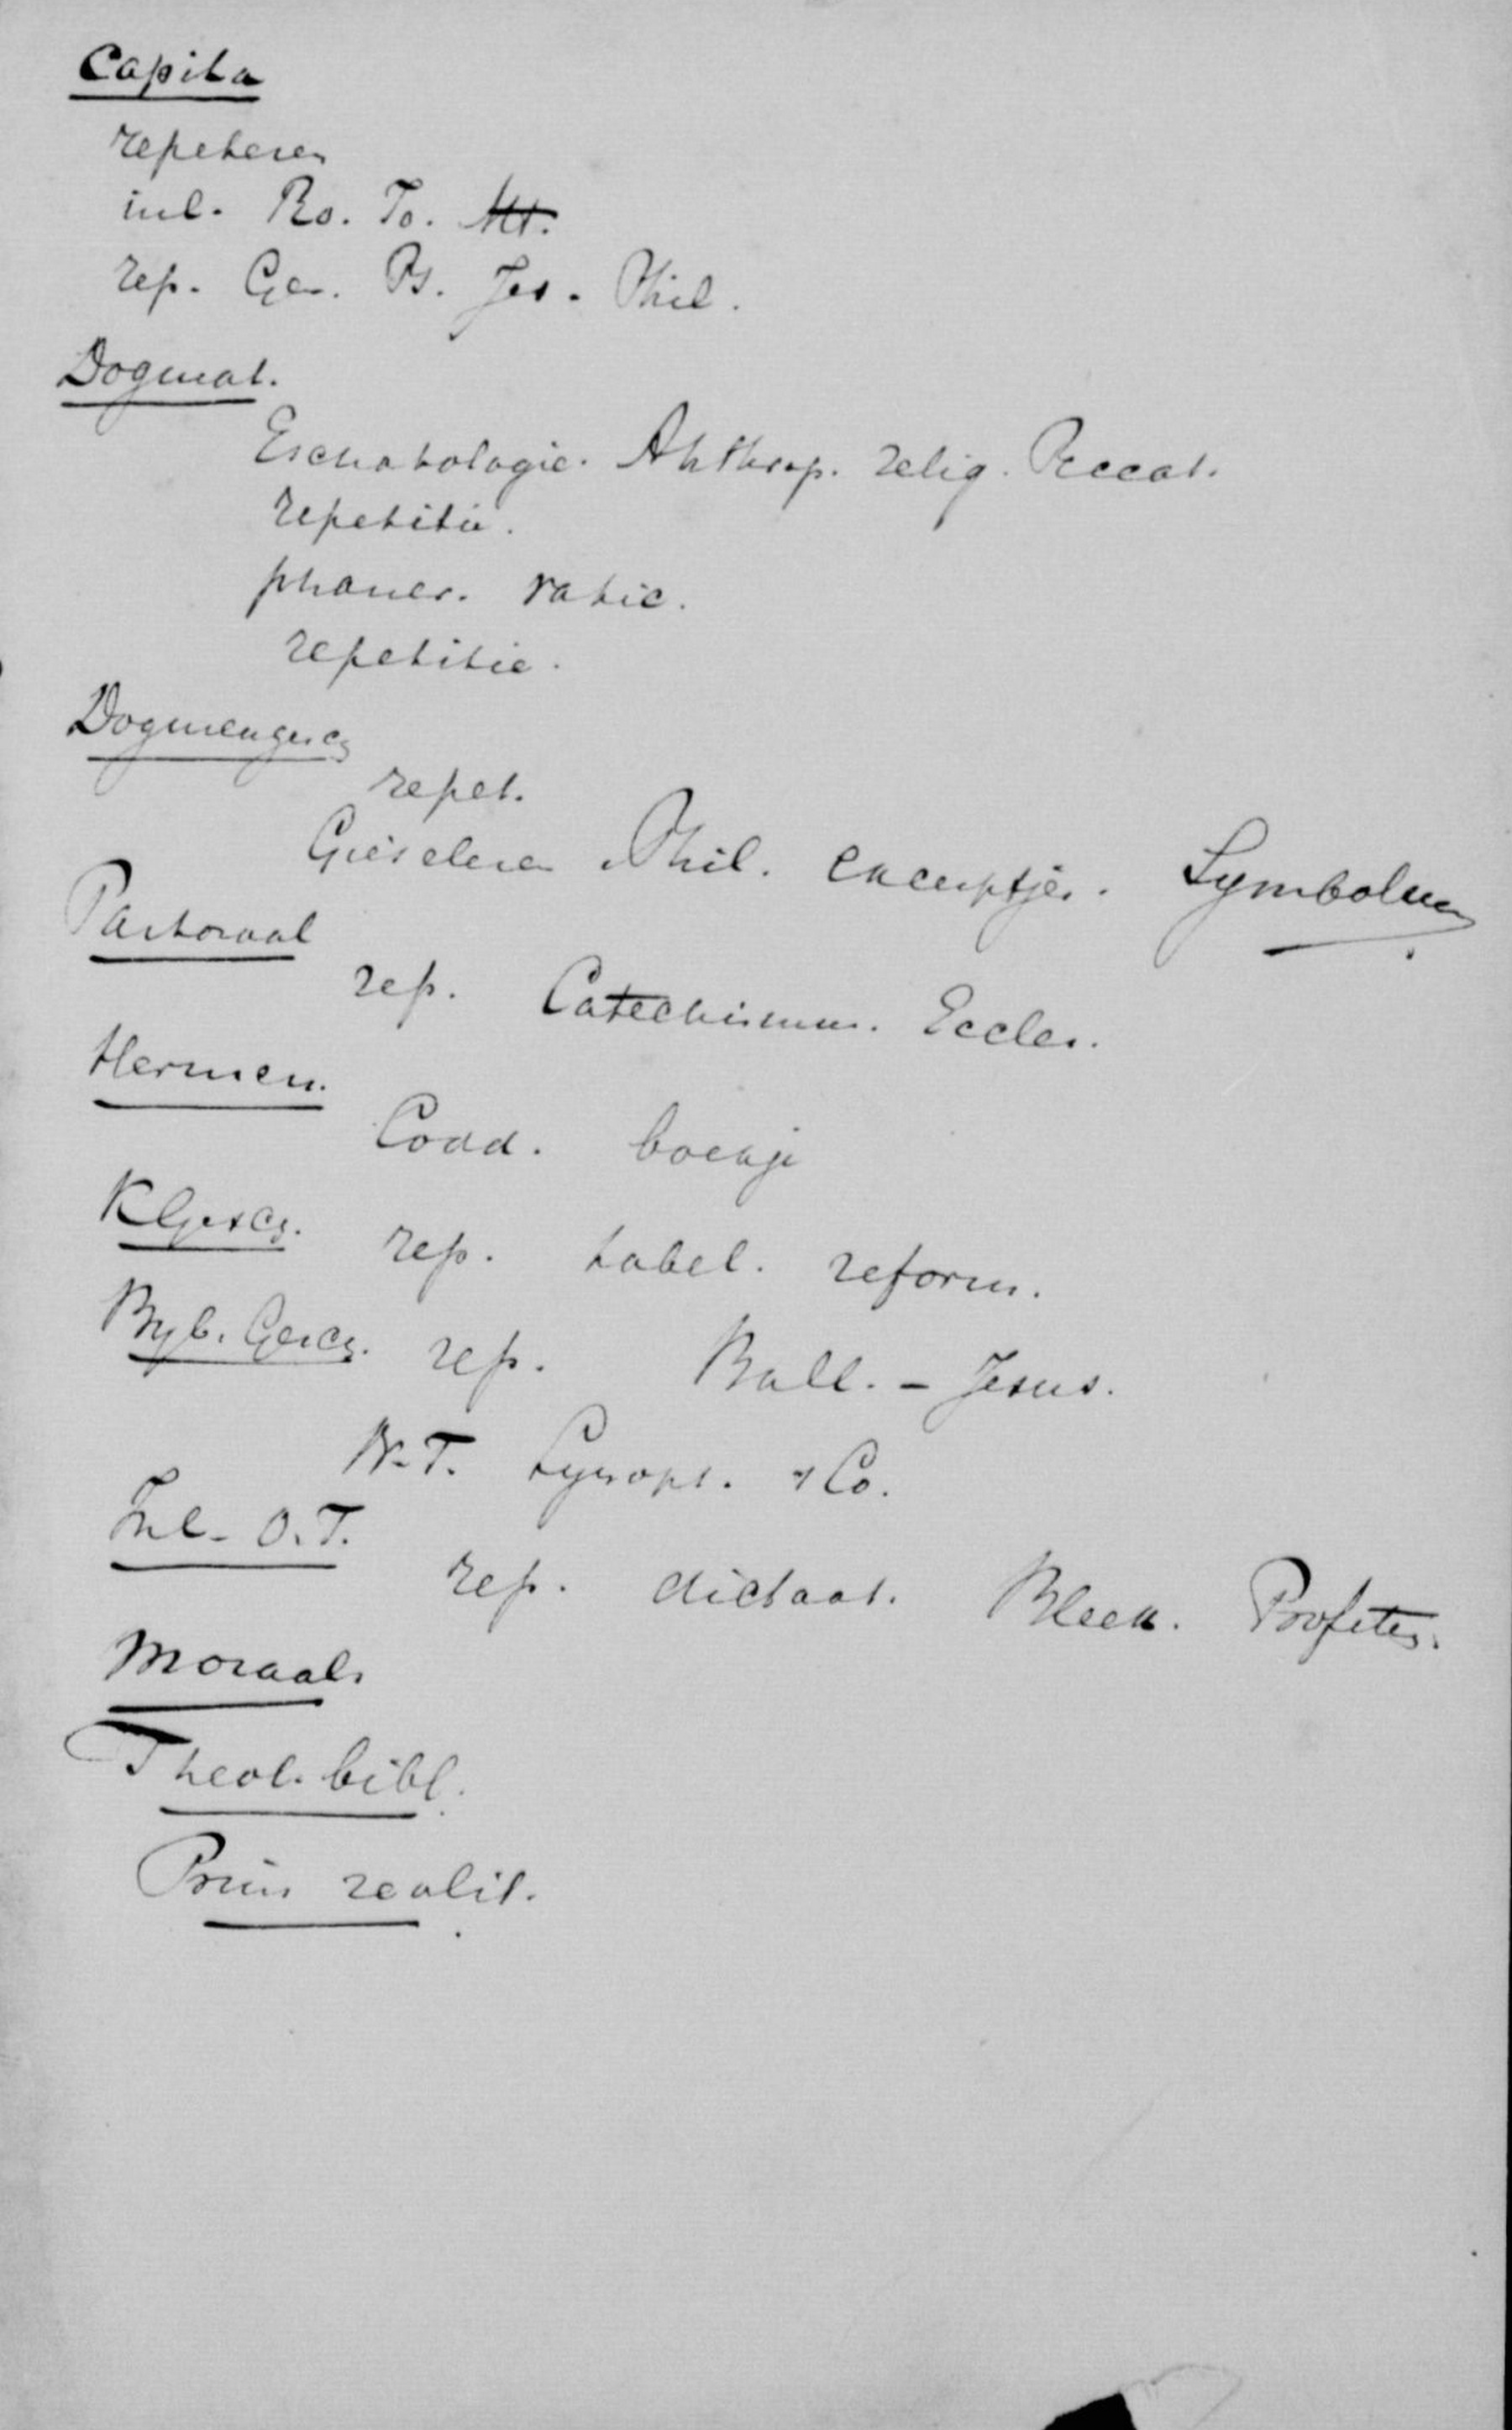 Capita
repeteren
inl. Ro. Jo. Mt.
rep. Gen. Ps. Jes. Phil.
Dogmat.
Eschatologie. Anthrop. relig. Peccat.
repetitie.
phaner. ratic.
repetitie.
Dogmengesch
repet.
Gieseleren Phil. excerptjes. Symbolen
Pastoraal
rep. Catechismus. Eccles.
Hermen.
Codd. boekje
KGesch.
rep. tabel. reform.
Byb. Gesch. rep. Ball. - Jesus.
N.T. Synopt. & Co.
Inl. O.T.
rep. dictaat. Bleek. Profeten.
Moraal.
Theol. bibl.
Pruis realit.